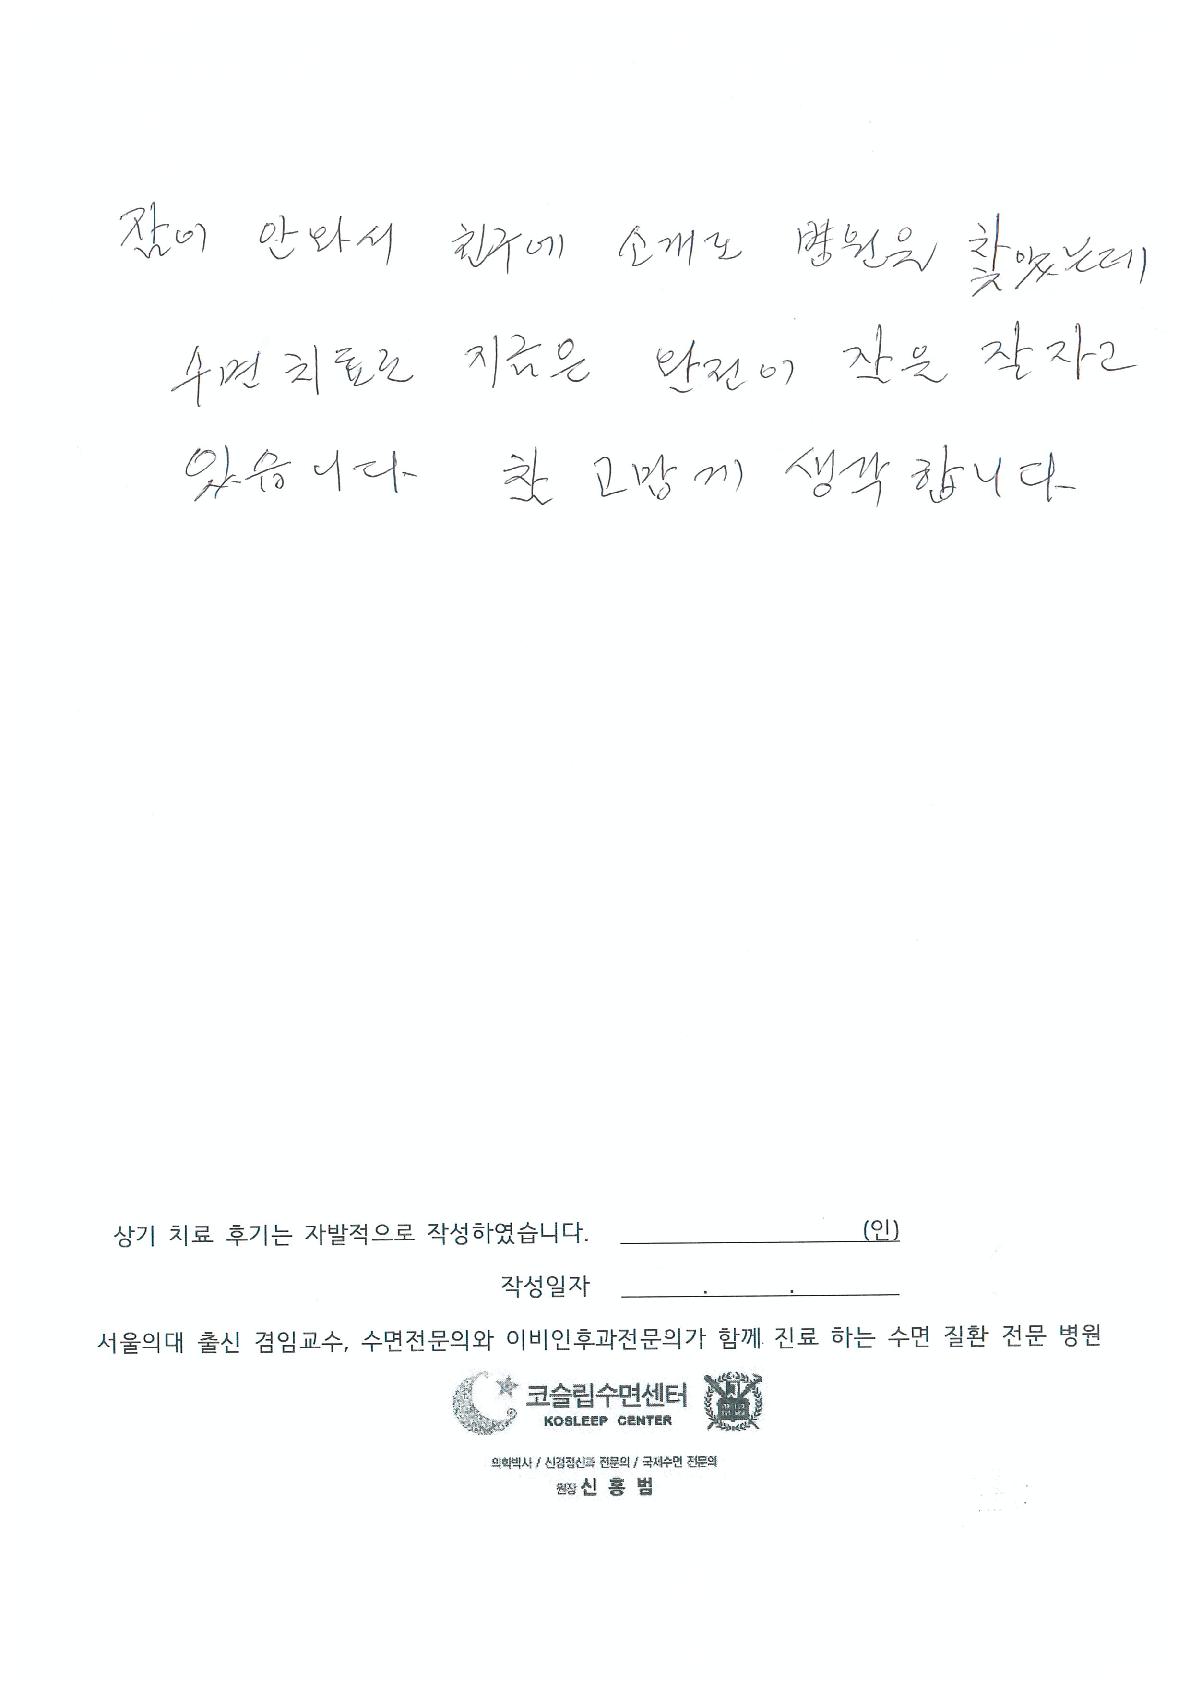 잠이 안와서 친구에 소개로 병원을 찾았는데
수면 치료로 지금은 완전이 잠을 잘 자고
있습니다 참 고맙게 생각합니다
상기 치료 후기는 자발적으로 작성하였습니다. (인)
작성일자 . .
서울의대 출신 겸임교수, 수면전문의와 이비인후과전문의가 함께 진료 하는 수면 질환 전문 병원
코슬립수면센터
KOSLEEP CENTER
의학박사 / 신경정신과 전문의 / 국제수면 전문의
원장 신 홍 범